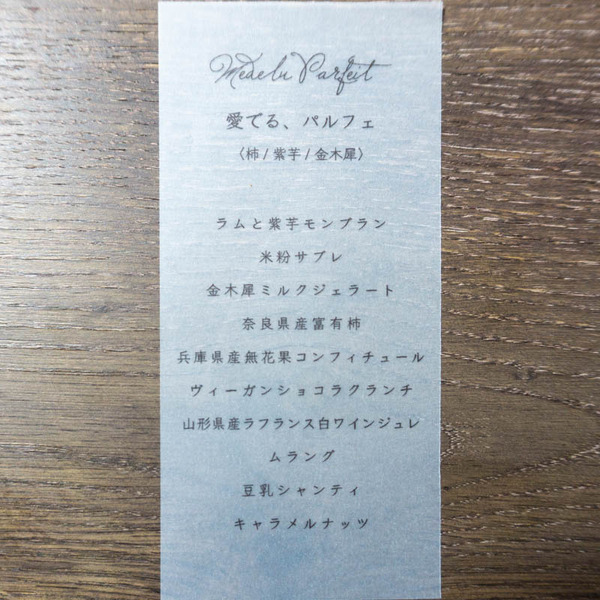 Medelu Parfeit
愛でる、パルフェ
〈柿/紫芋/金木犀〉
ラムと紫芋モンブラン
米粉サブレ
金木犀ミルクジェラート
奈良県産富有柿
兵庫県産無花果コンフィチュール
ヴィーガンショコラクランチ
山形県産ラフランス白ワインジュレ
ムラング
豆乳シャンティ
キャラメルナッツ